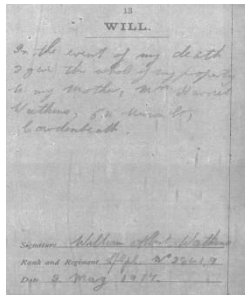 13
WILL.
In the event of my death
I give the whole of my property
to my mother, Mrs
Watkins,
Cowdenbeath.
Signature William Watkins
Rank and Regiment
Date 2 May 1917.